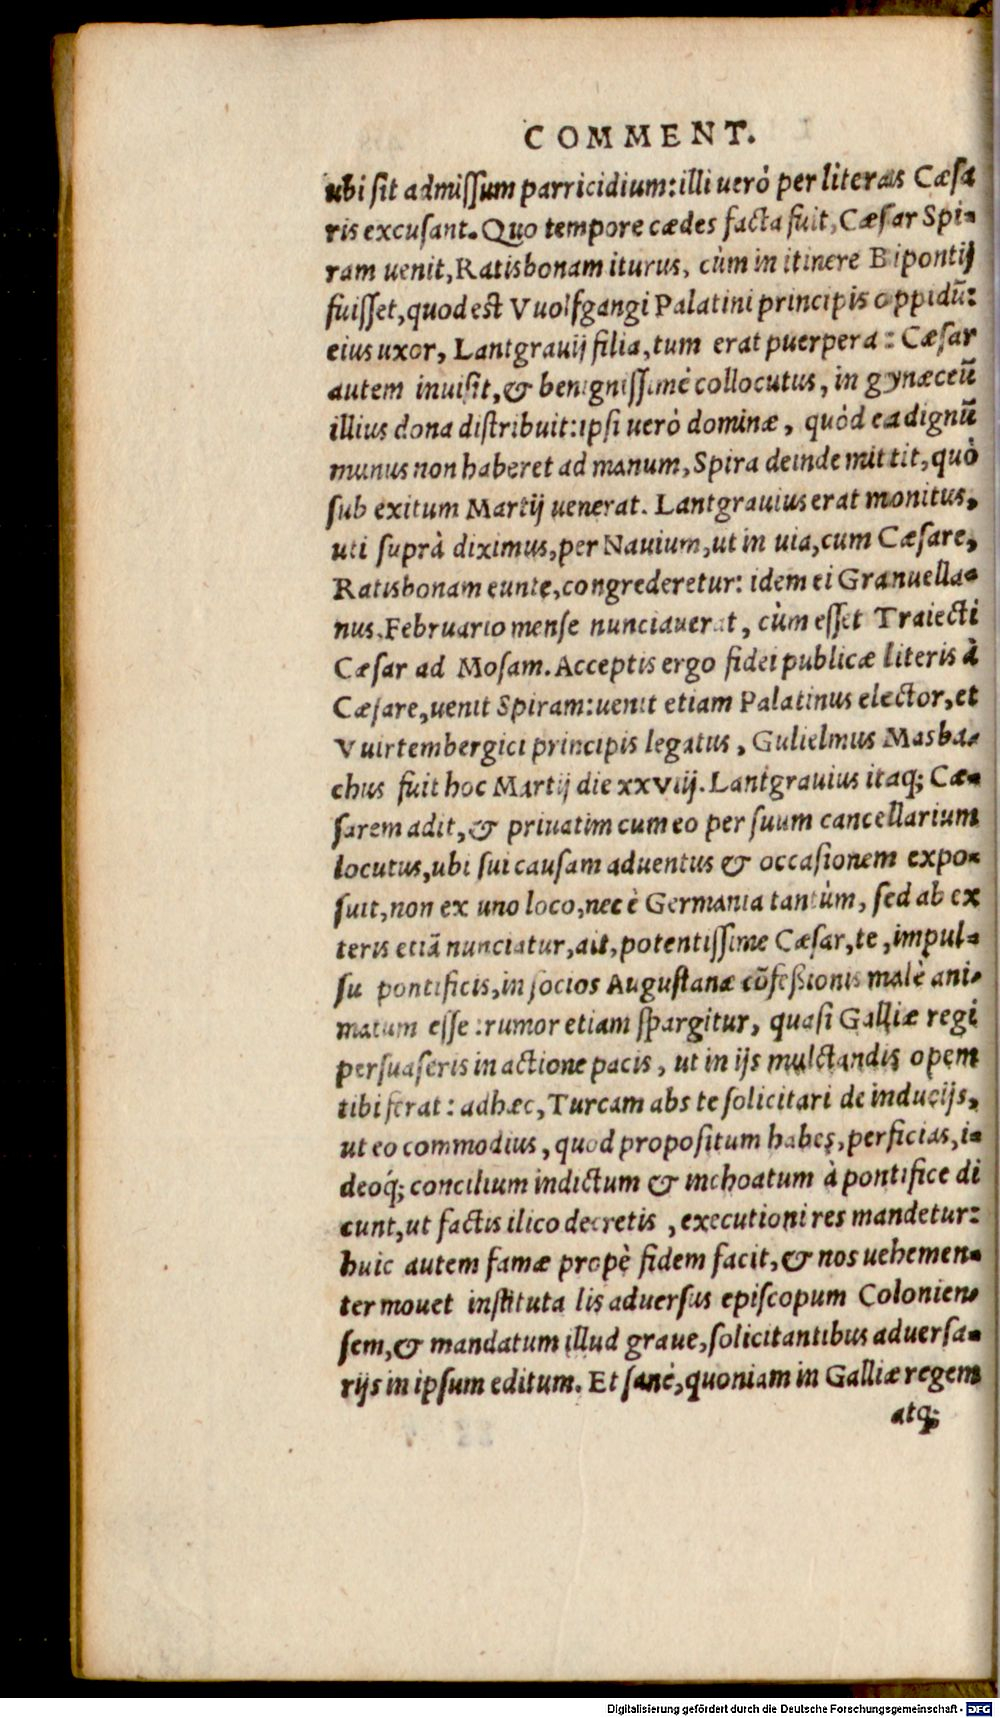 COMMENT.
ubi sit admissum parricidium: illi uerò per literas Cæsa
ris excusant. Quo tempore cædes facta fuit, Cæsar Spi-
ram uenit, Ratisbonam iturus, cùm in itinere Bipontij
fuisset, quod est Vuolfgangi Palatini principis oppidũ:
eius uxor, Lantgrauij filia, tum erat puerpera: Cæsar
autem inuisit, & benignissimè collocutus, in gynæceũ
illius dona distribuit: ipsi uerò dominæ, quòd ea dignũ
munus non haberet ad manum, Spira deinde mittit, quò
sub exitum Martij uenerat. Lantgrauius erat monitus,
uti suprà diximus, per Nauium, ut in uia, cum Cæsare,
Ratisbonam eunte, congrederetur: idem ei Granuella-
nus, Februario mense nunciauerat, cùm esset Traiecti
Cæsar ad Mosam. Acceptis ergo fidei publicæ literis à
Cæsare, uenit Spiram: uenit etiam Palatinus elector, et
Vuirtembergici principis legatus, Gulielmus Masba-
chus fuit hoc Martij die xxviij. Lantgrauius itaq; Cæ-
sarem adit, & priuatim cum eo per suum cancellarium
locutus, ubi sui causam aduentus & occasionem expo-
suit, non ex uno loco, nec è Germania tantùm, sed ab ex
teris etiã nunciatur, ait, potentissime Cæsar, te, impul-
su pontificis, in socios Augustanæ cõfeßionis malè ani-
matum esse: rumor etiam spargitur, quasi Galliæ regi
persuaseris in actione pacis, ut in ijs mulctandis opem
tibi ferat: adhæc, Turcam abs te solicitari de inducijs,
ut eo commodius, quod propositum habes, perficias, i-
deoq́; concilium indictum & inchoatum à pontifice di
cunt, ut factis ilico decretis, executioni res mandetur:
huic autem famæ propè fidem facit, & nos uehemen-
ter mouet instituta lis aduersus episcopum Colonien-
sem, & mandatum illud graue, solicitantibus aduersa-
rijs in ipsum editum. Et sanè, quoniam in Galliæ regem
atq;
Digitalisierung gefördert durch die Deutsche Forschungsgemeinschaft - DFG